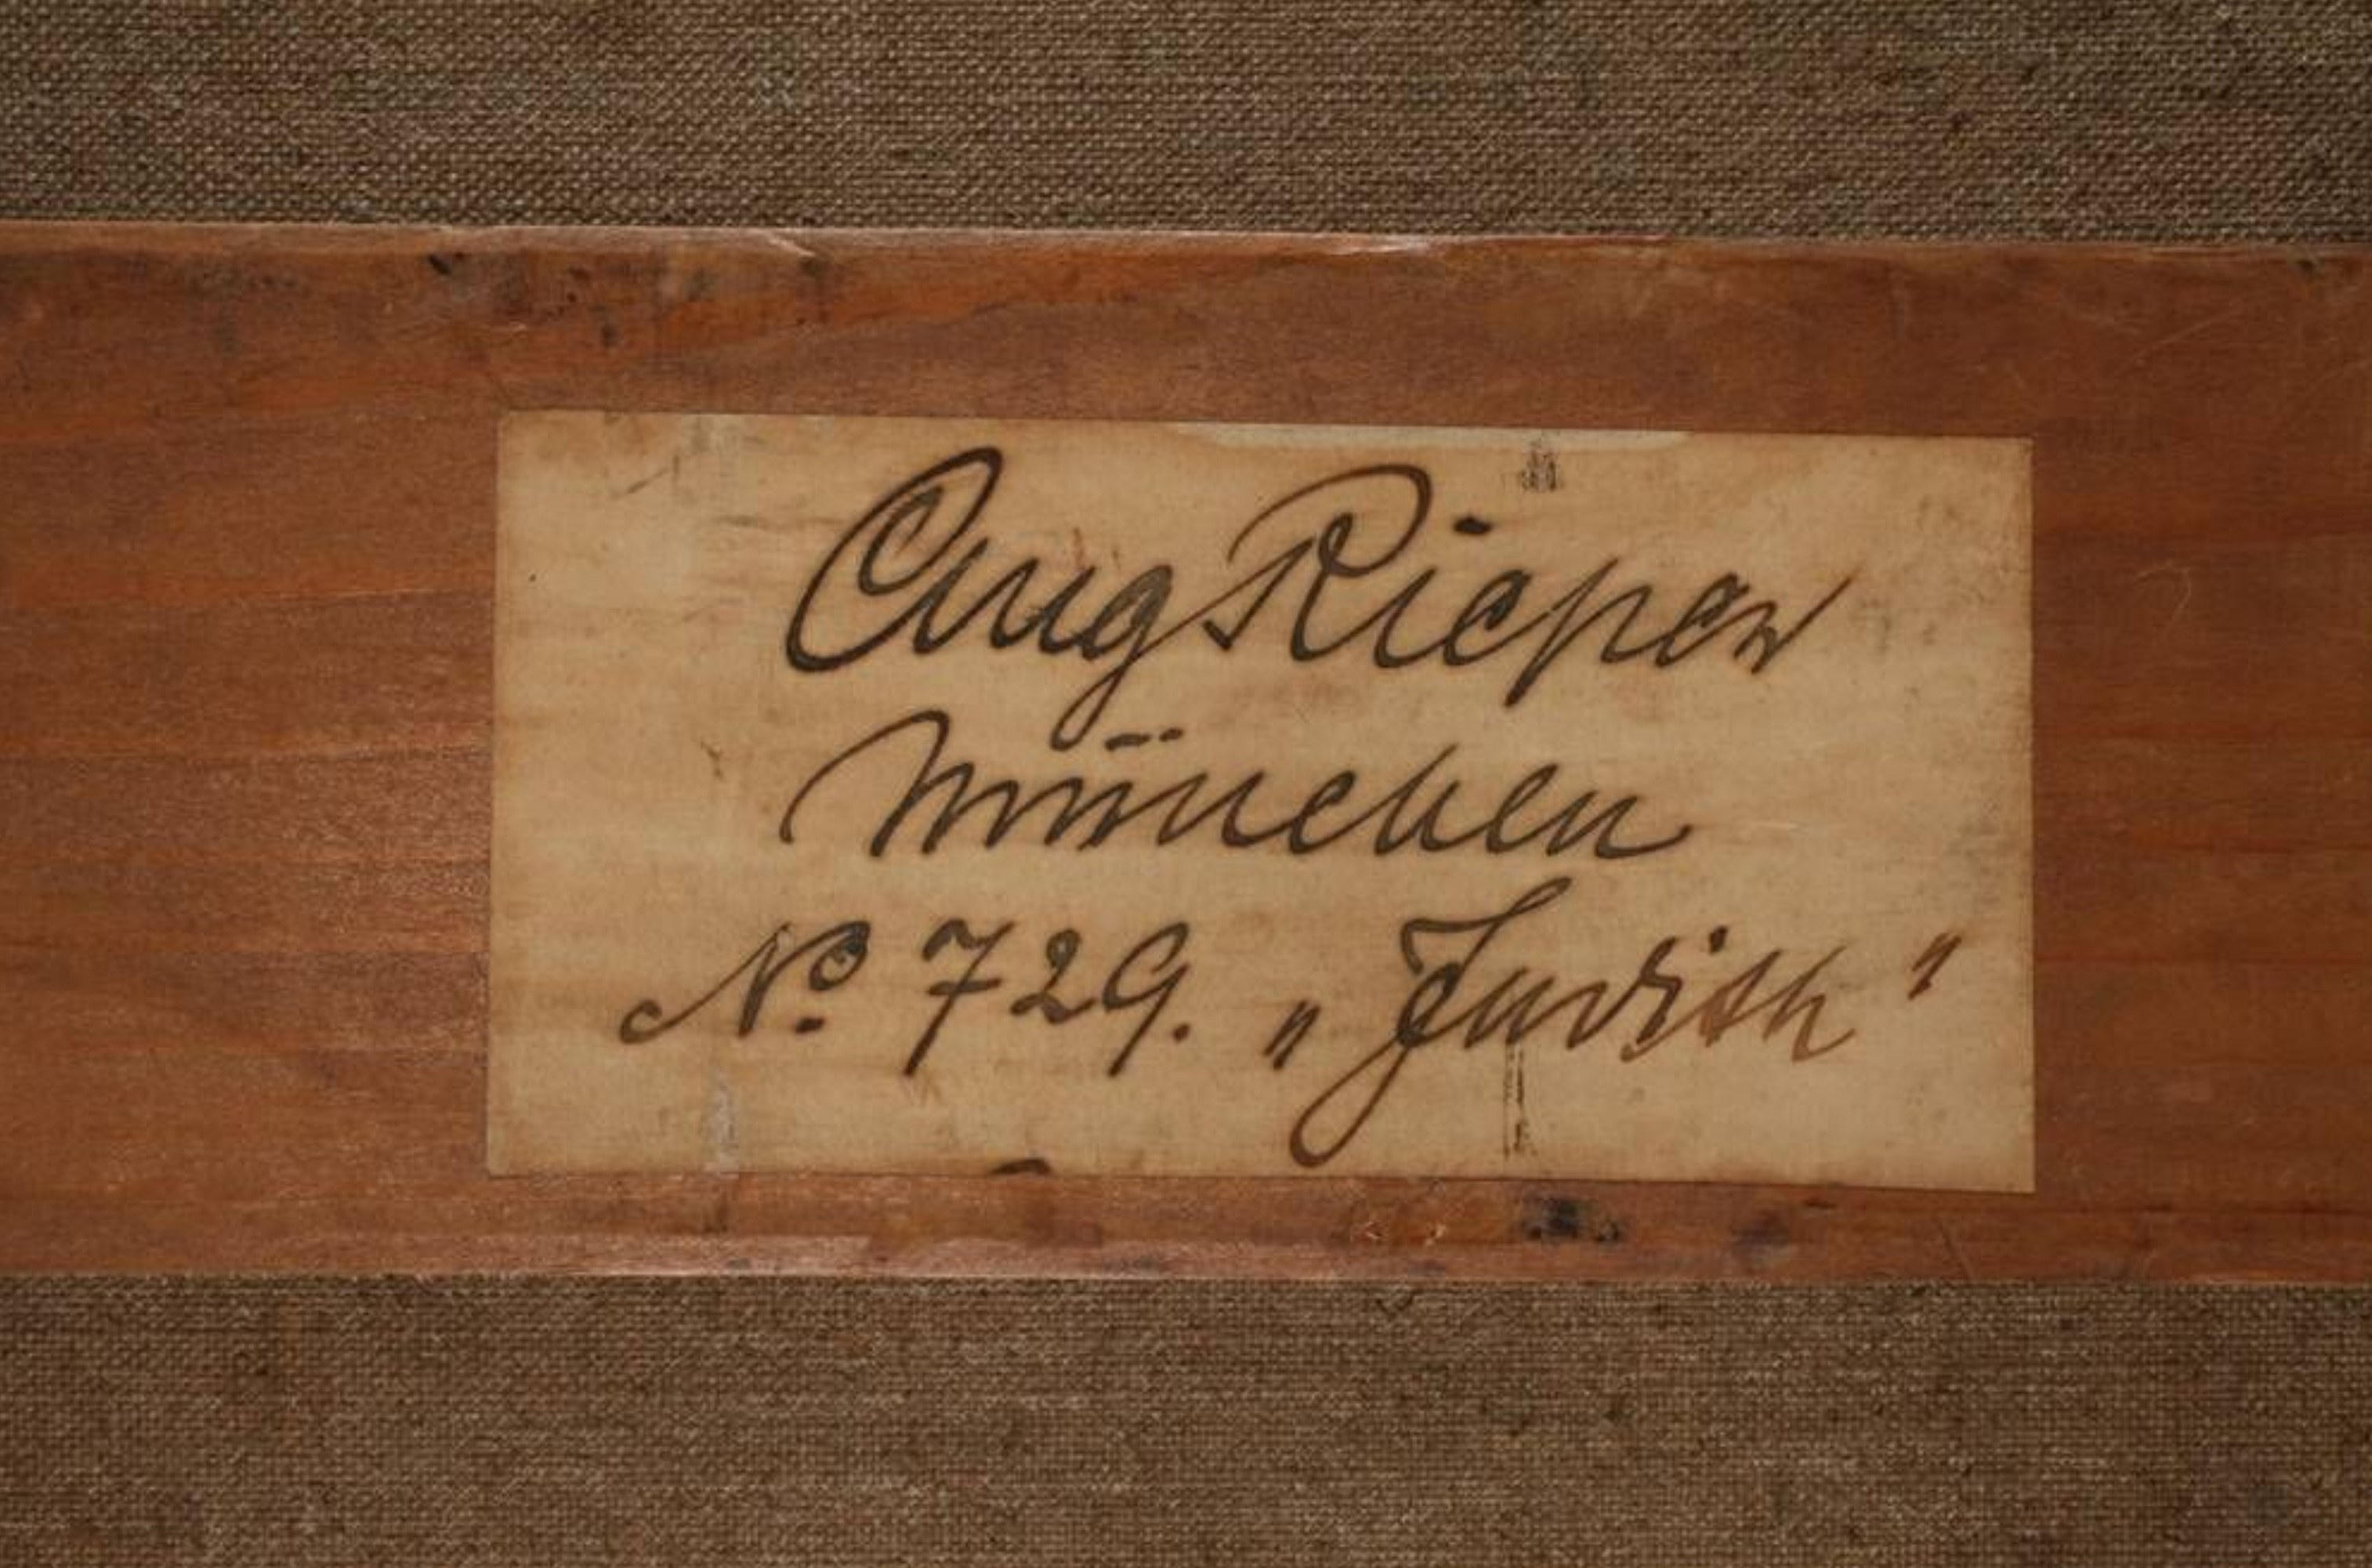 Aug Rieper
München
No. 729. „Judith"